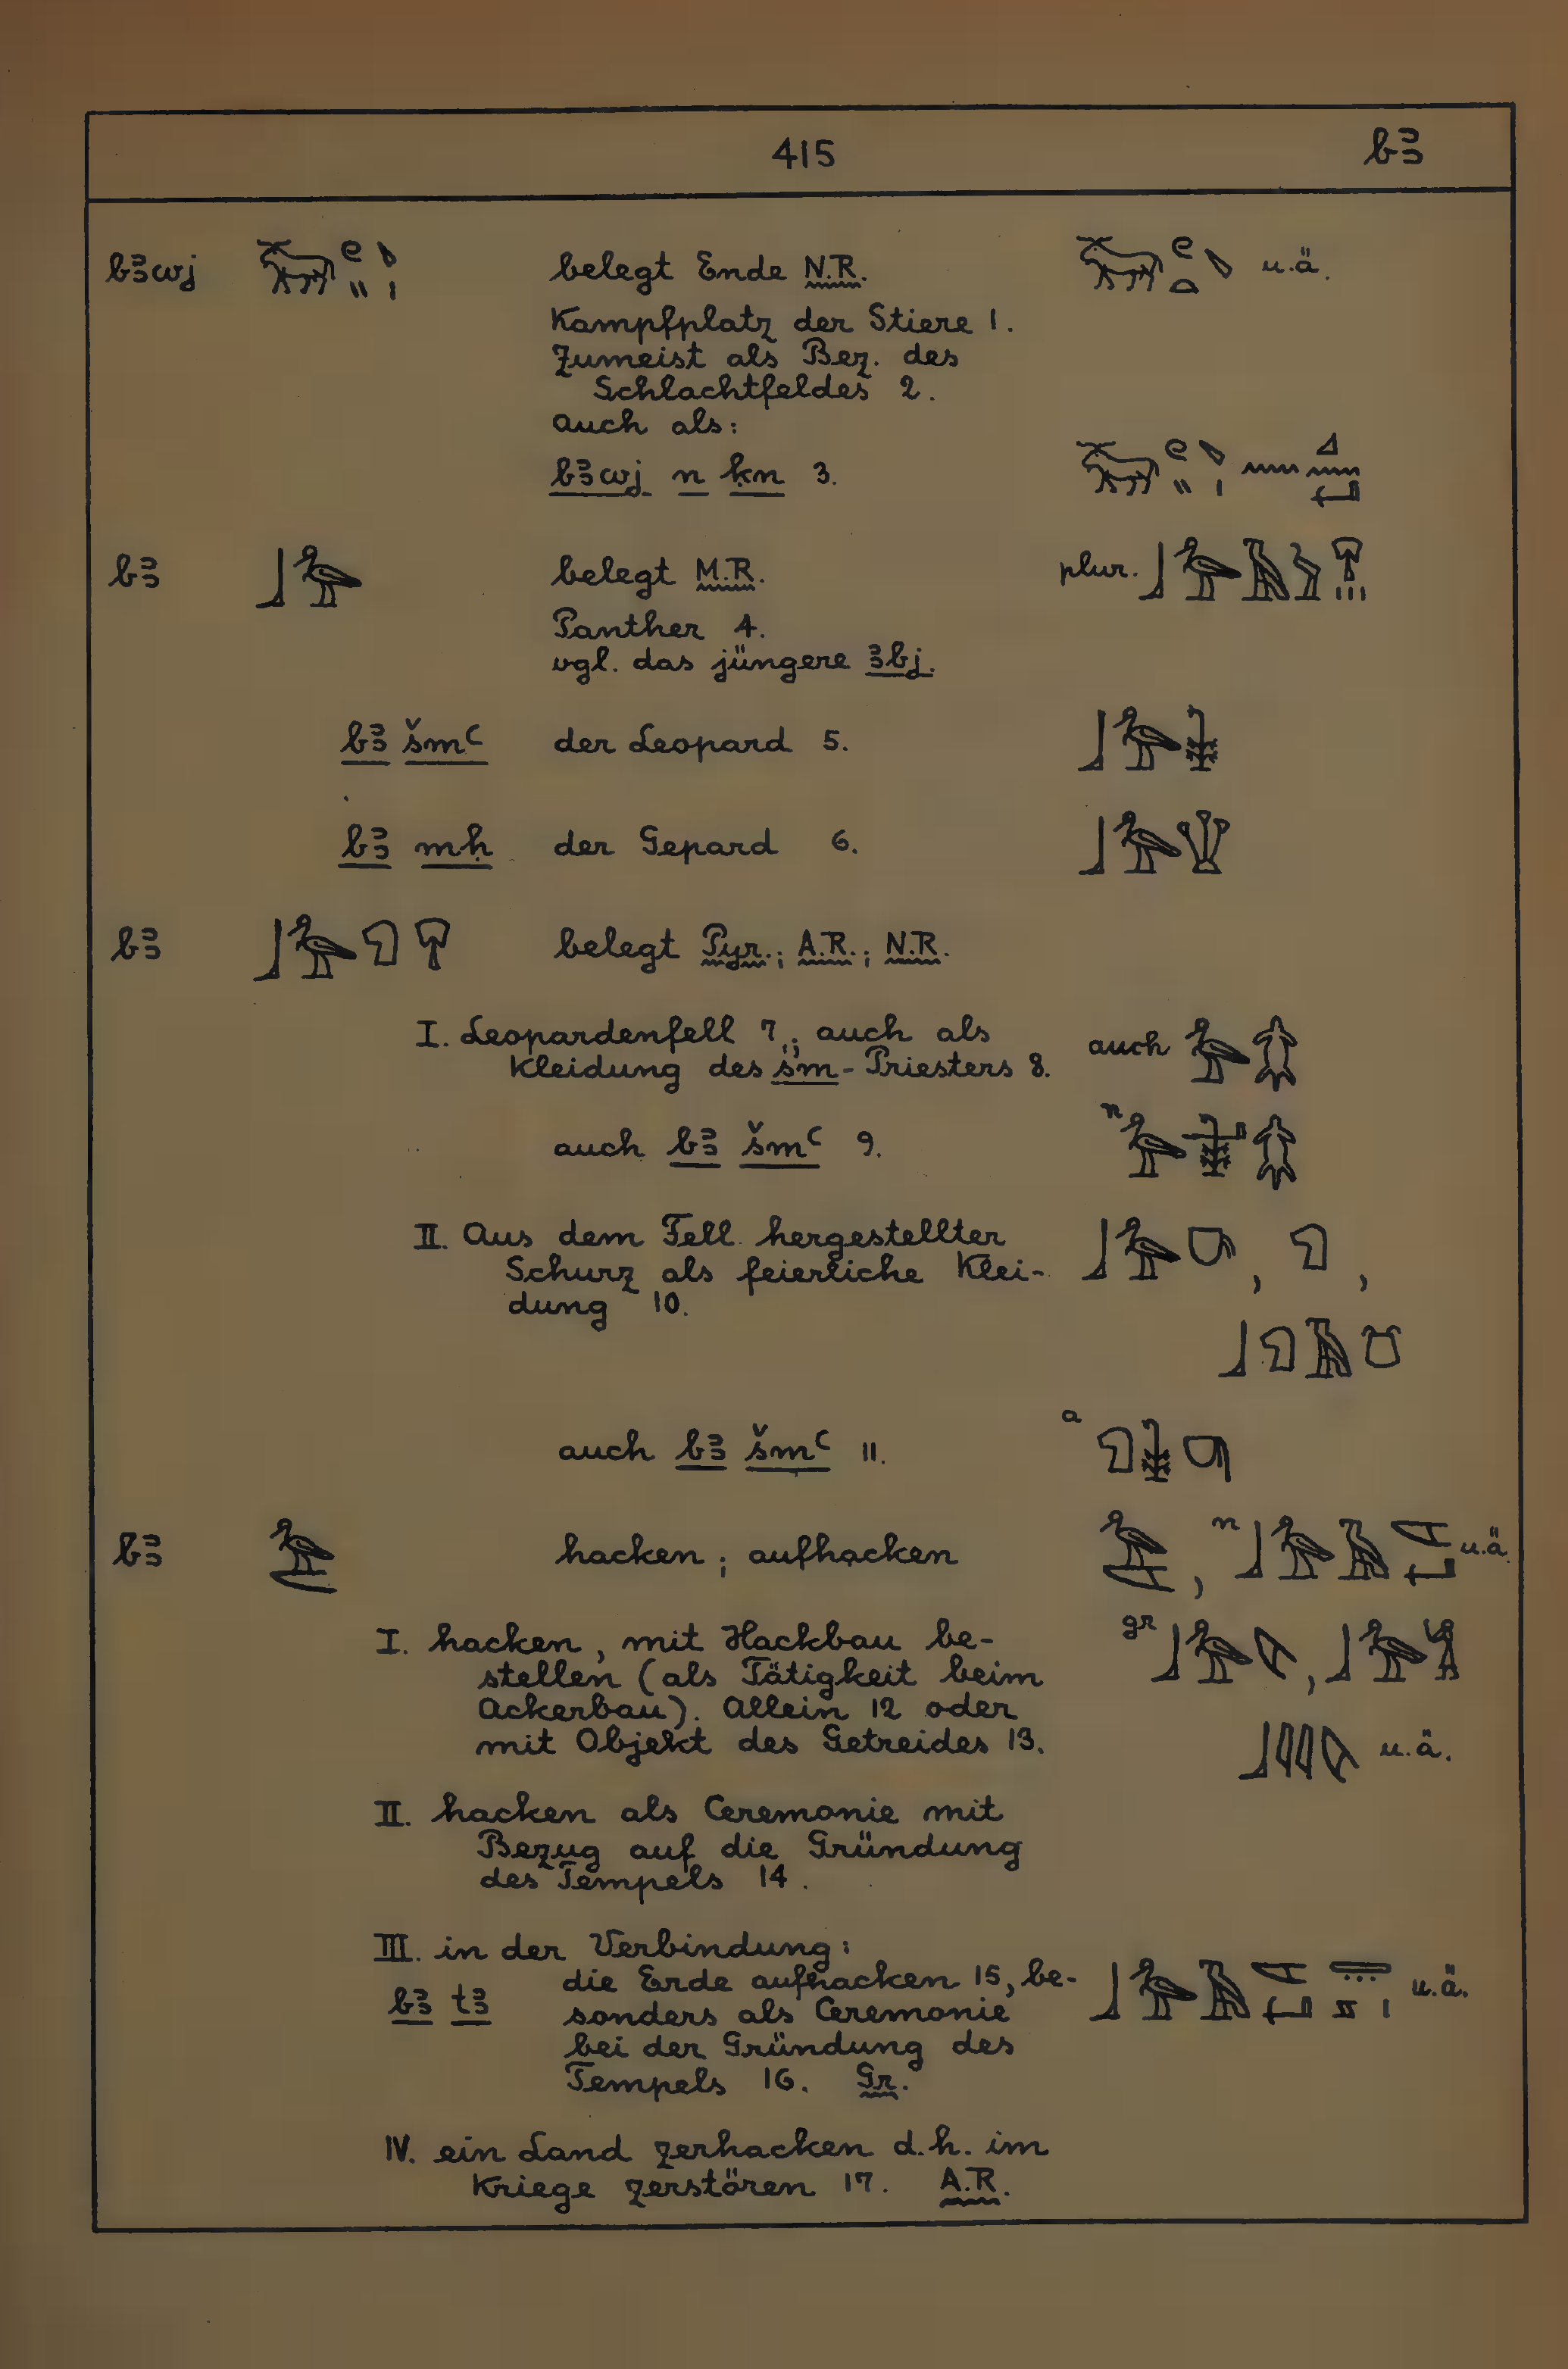 415 bꜣ
bꜣwj belegt Ende N.R. u.ä.
Kampfplatz der Stiere 1.
Zumeist als Bez. des
Schlachtfeldes 2.
auch als:
bꜣwj n ḳn 3.
bꜣ belegt M.R. plur.
Panther 4.
vgl. das jüngere ꜣbj.
bꜣ šmꜥ der Leopard 5.
bꜣ mḥ der Gepard 6.
bꜣ belegt Pyr.; A.R.; N.R.
I. Leopardenfell 7,; auch als auch
Kleidung des śm-Priesters 8.
auch bꜣ šmꜥ 9. n
II. Aus dem Fell hergestellter
Schurz als feierliche Klei- , ,
dung 10.
auch bꜣ šmꜥ 11. a
bꜣ hacken; aufhacken , n u.ä.
I. hacken, mit Hackbau be- gr ,
stellen (als Tätigkeit beim
Ackerbau). Allein 12 oder
mit Objekt des Getreides 13. u.ä.
II. hacken als Ceremonie mit
Bezug auf die Gründung
des Tempels 14.
III. in der Verbindung:
bꜣ tꜣ die Erde aufhacken 15, be- u.ä.
sonders als Ceremonie
bei der Gründung des
Tempels 16. Gr.
IV. ein Land zerhacken d.h. im
Kriege zerstören 17. A.R.